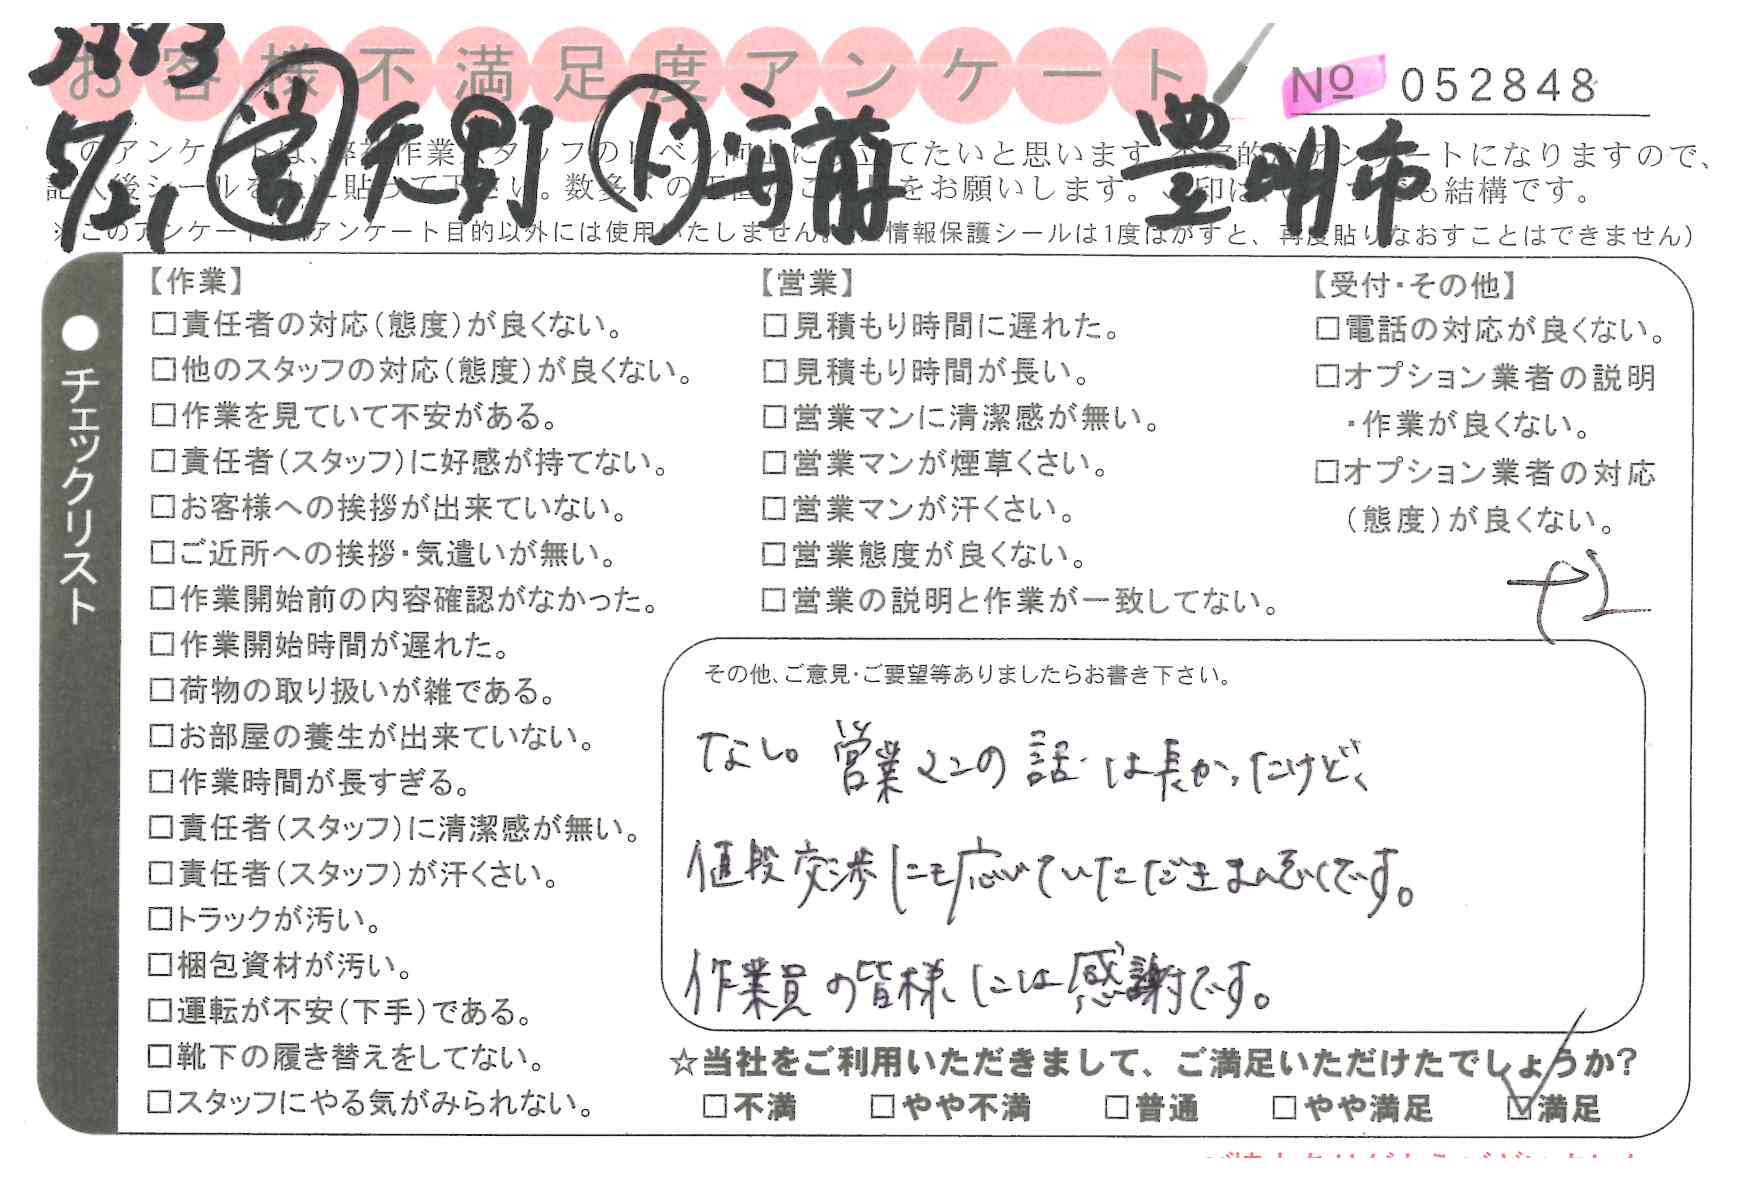 お客様不満足度アンケート
No 052848
5/21 営 天野 ト 毎前 豊明市
※このアンケートはアンケート目的以外には使用いたしません。 情報保護シールは1度はがすと、再度貼りなおすことはできません)
●チェックリスト
【作業】
□責任者の対応(態度)が良くない。
□他のスタッフの対応(態度)が良くない。
□作業を見ていて不安がある。
□責任者(スタッフ)に好感が持てない。
□お客様への挨拶が出来ていない。
□ご近所への挨拶・気遣いが無い。
□作業開始前の内容確認がなかった。
□作業開始時間が遅れた。
□荷物の取り扱いが雑である。
□お部屋の養生が出来ていない。
□作業時間が長すぎる。
□責任者(スタッフ)に清潔感が無い。
□責任者(スタッフ)が汗くさい。
□トラックが汚い。
□梱包資材が汚い。
□運転が不安(下手)である。
□靴下の履き替えをしてない。
□スタッフにやる気がみられない。
【営業】
□見積もり時間に遅れた。
□見積もり時間が長い。
□営業マンに清潔感が無い。
□営業マンが煙草くさい。
□営業マンが汗くさい。
□営業態度が良くない。
□営業の説明と作業が一致してない。
【受付・その他】
□電話の対応が良くない。
□オプション業者の説明
・作業が良くない。
□オプション業者の対応
(態度)が良くない。
+2
その他、ご意見・ご要望等ありましたらお書き下さい。
なし。営業マンの話は長かったけど、
値段交渉にも応じていただきまんぞくです。
作業員の皆様には感謝です。
☆当社をご利用いただきまして、ご満足いただけたでしょうか?
□不満 □やや不満 □普通 □やや満足 ☑満足